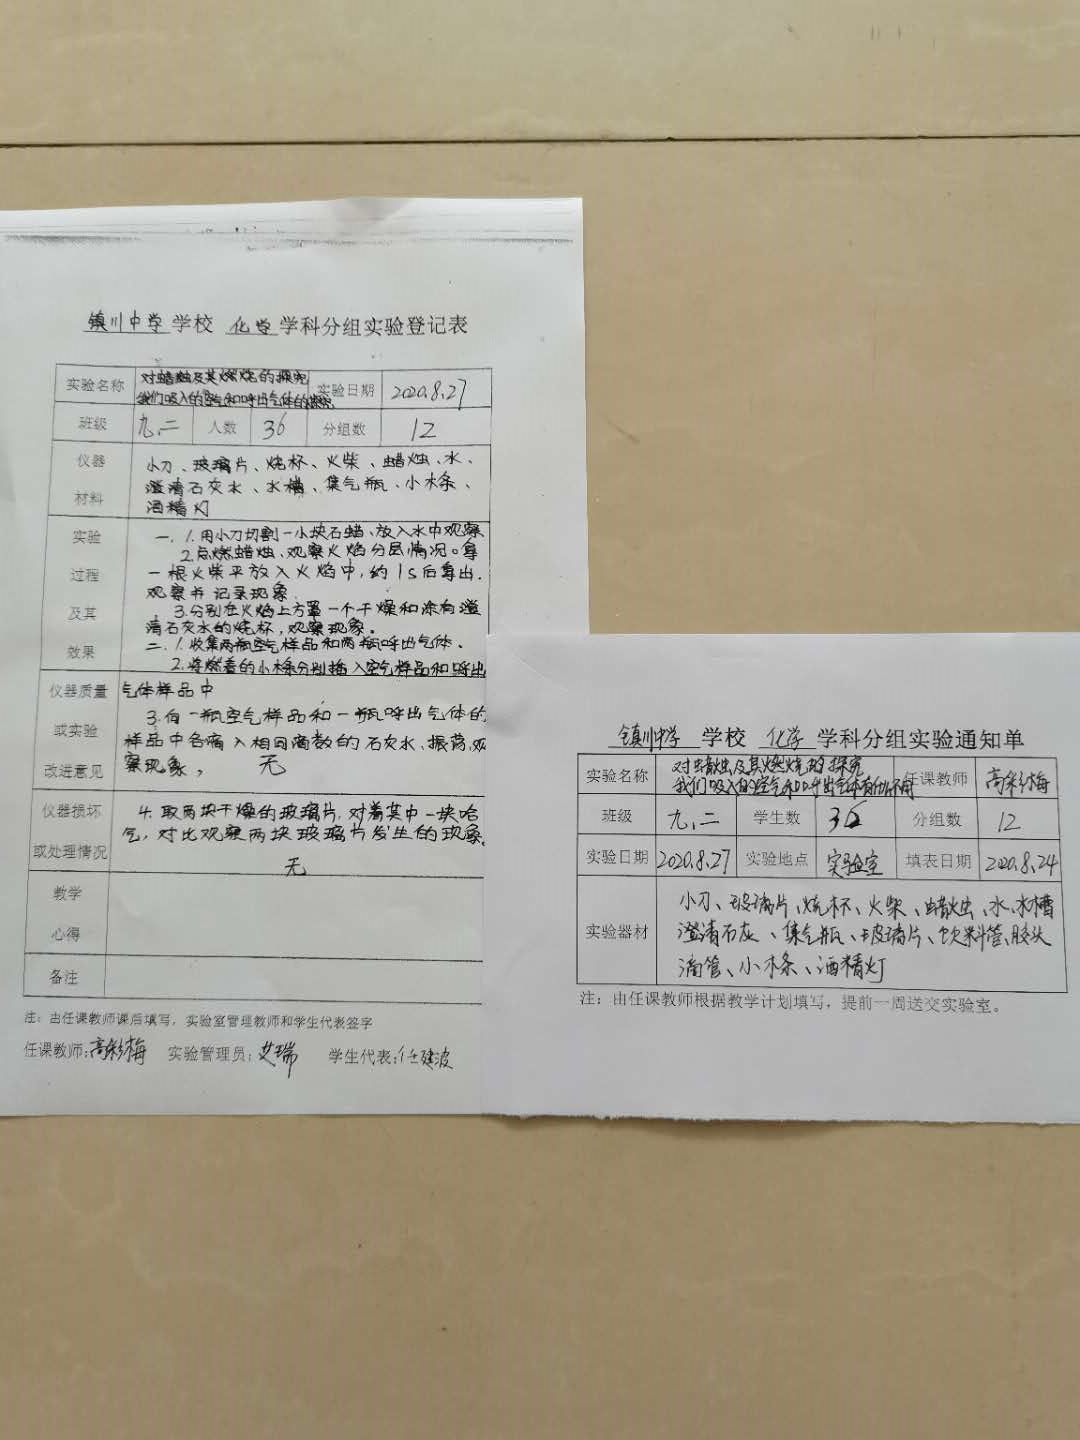 镇川中学 学校 化学 学科分组实验登记表
实验名称 对蜡烛及其燃烧的探究 实验日期 2020.8.27
我们吸入的空气和呼出气体的探究
班级 九、二 人数 36 分组数 12
仪器 小刀、玻璃片、烧杯、火柴、蜡烛、水、
澄清石灰水、水槽、集气瓶、小木条、
材料 酒精灯
实验 一、1.用小刀切割一小块石蜡、放入水中观察
2.点燃蜡烛、观察火焰分层情况。拿
过程 一根火柴平放入火焰中,约1s后拿出.
观察并记录现象.
及其 3.分别在火焰上方罩一个干燥和涂有澄
清石灰水的烧杯,观察现象。
效果 二、1.收集两瓶空气样品和两瓶呼出气体.
2.将燃着的小木条分别插入空气样品和呼出
仪器质量 气体样品中
3.向一瓶空气样品和一瓶呼出气体的
或实验 样品中各滴入相同滴数的石灰水、振荡,观
改进意见 察现象, 无
仪器损坏 4.取两块干燥的玻璃片,对着其中一块哈
气,对比观察两块玻璃片发生的现象.
或处理情况 无
教学
心得
备注
注:由任课教师课后填写,实验室管理教师和学生代表签字
任课教师:高彩梅 实验管理员:艾瑞 学生代表:任建波
镇川中学 学校 化学 学科分组实验通知单
实验名称 对蜡烛及其燃烧的探究 任课教师 高彩梅
我们吸入的空气和呼出气体有什么不同
班级 九、二 学生数 36 分组数 12
实验日期 2020.8.27 实验地点 实验室 填表日期 2020.8.24
小刀、玻璃片、烧杯、火柴、蜡烛、水、水槽
实验器材 澄清石灰、集气瓶、玻璃片、饮料管、胶头
滴管、小木条、酒精灯
注:由任课教师根据教学计划填写,提前一周送交实验室。